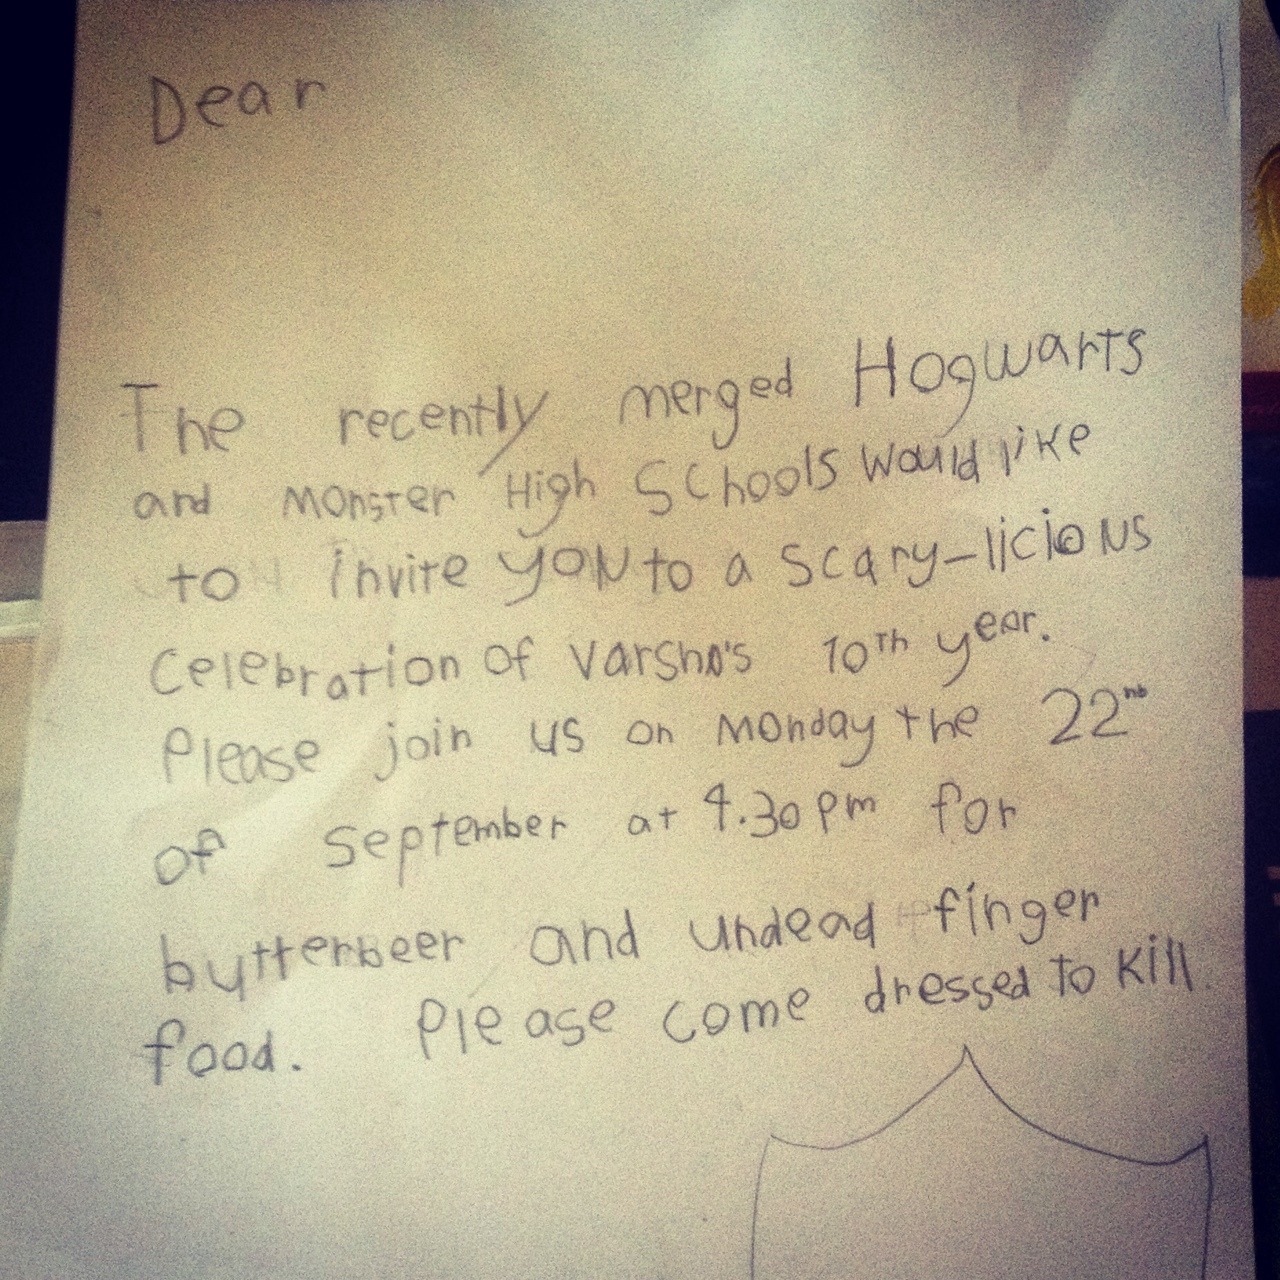 Dear
The recently merged Hogwarts
and Monster High Schools would like
to invite you to a scary-licious
celebration of Varsha's 10th year.
Please join us on Monday the 22nd
of September at 4.30pm for
butterbeer and undead finger
food. Please come dressed to kill.